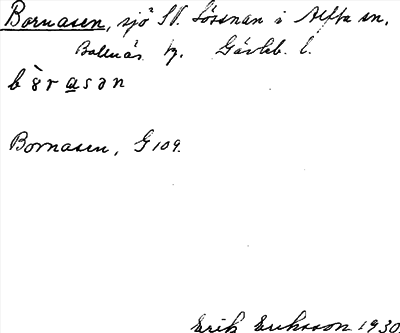 Bornasen, sjö SV. Lössnan i Alfta sn,
Bollnäs tg. Gävleb. l.
b ò̈ r a s ə n
Bornasen, G 109.
Erik Eriksson 1930.